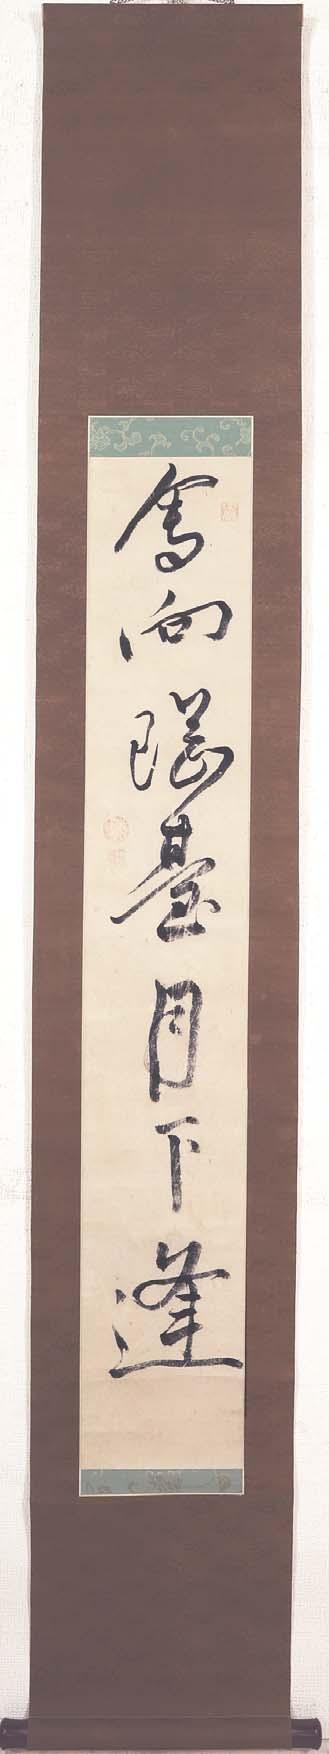 會向瑤臺月下逢